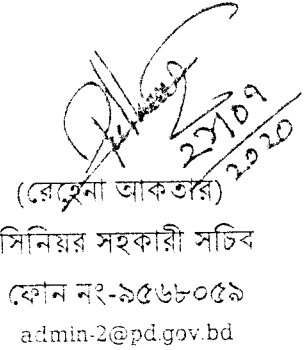 ২৭/০৭
২০২০
(রেহেনা আকতার)
সিনিয়র সহকারী সচিব
ফোন নং-৯৫৬৮০৫৯
admin-2@pd.gov.bd